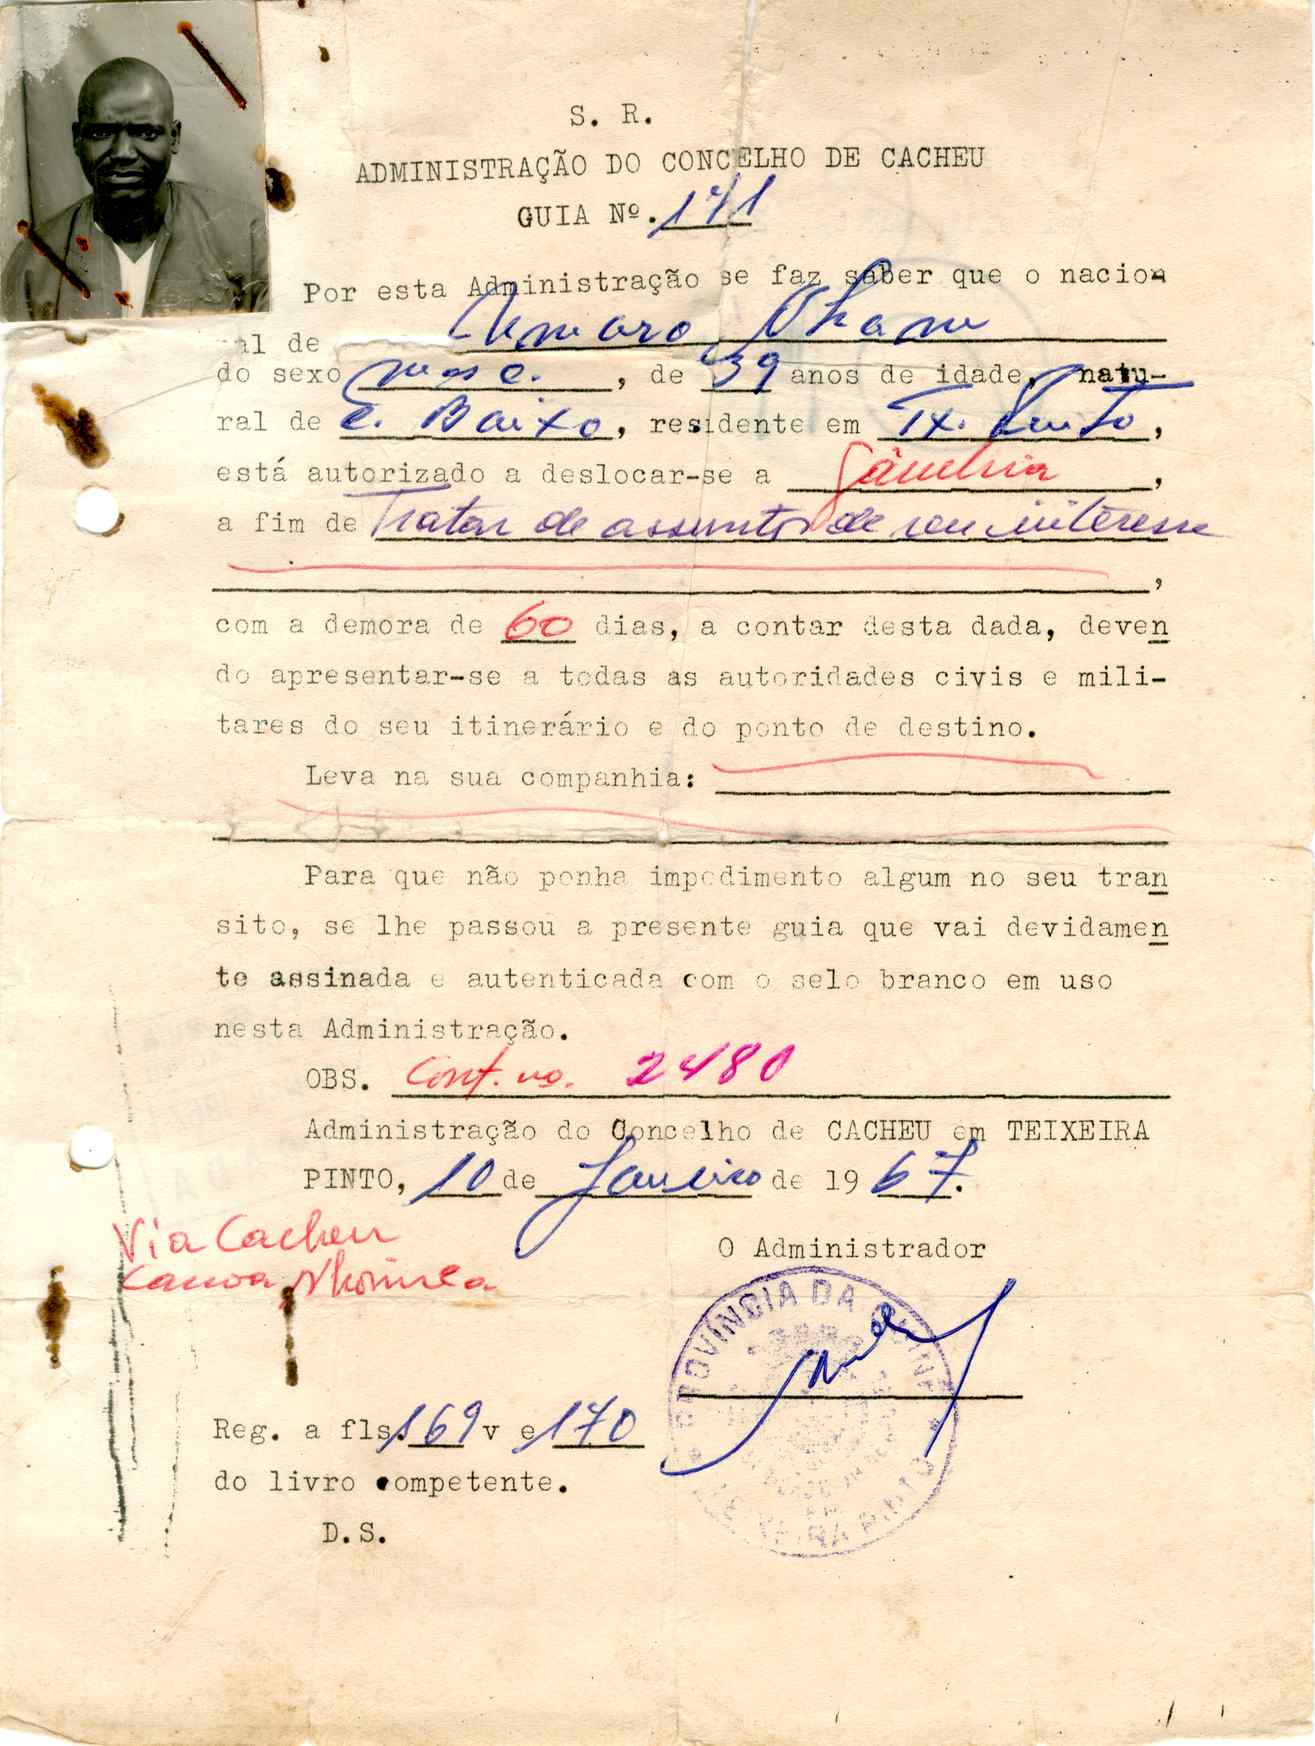 S. R.
ADMINISTRAÇÃO DO CONCELHO DE CACHEU
GUIA Nº. 171
Por esta Administração se faz saber que o nacio-
al de
do sexo masc., de 39 anos de idade, natu-
ral de C. Baixo, residente em Tx. Pinto,
está autorizado a deslocar-se a Gâmbia,
a fim de Tratar de assuntos de seu interesse
,
com a demora de 60 dias, a contar desta dada, deven
do apresentar-se a todas as autoridades civis e mili-
tares do seu itinerário e do ponto de destino.
Leva na sua companhia:
Para que não ponha impedimento algum no seu tran
sito, se lhe passou a presente guia que vai devidamen
te assinada e autenticada com o selo branco em uso
nesta Administração.
OBS. Conf. no. 2480
Administração do Concelho de CACHEU em TEIXEIRA
PINTO, 10 de Janeiro de 1967.
Via Cacheu
Canoa Nhominca
O Administrador
PROVÍNCIA DA GUINÉ
TEIXEIRA PINTO
Reg. a fls. 169 v e 170
do livro competente.
D.S.